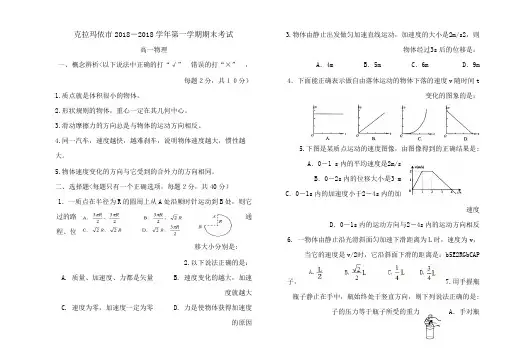 克拉玛依市2018-2018学年第一学期期末考试
高一物理
一、概念辨析<以下说法中正确的打“√” 错误的打“×” ，
每题2分，共10分）
1.质点就是体积很小的物体。
2.形状规则的物体，重心一定在其几何中心。
3.滑动摩擦力的方向总是与物体的运动方向相反。
4.同一汽车，速度越快，越难刹车，说明物体速度越大，惯性越
大。
5.物体速度变化的方向与它受到的合外力的方向相同。
二、选择题<每题只有一个正确选项，每题2分，共40分）
1．一质点在半径为R的圆周上从A处沿顺时针运动到B处，则它
过的路
通
程、位
移大小分别是:
2.以下说法正确的是：
A. 质量、加速度、力都是矢量 B. 速度变化的越大，加速
度就越大
C. 速度为零，加速度一定为零 D. 力是使物体获得加速度
的原因
3.物体由静止出发做匀加速直线运动，加速度的大小是2m/s2，则
物体经过3s后的位移是：
A．4m B．5m C．6m D．9m
4．下面能正确表示做自由落体运动的物体下落的速度v随时间t
变化的图象的是：
5.下图是某质点运动的速度图像，由图像得到的正确结果是：
A．0-1 s内的平均速度是2m/s
B．0-2s内的位移大小是3 m
C．0-1s内的加速度小于2-4s内的加
速度
D．0-1s内的运动方向与2-4s内的运动方向相反
6. 一物体由静止沿光滑斜面匀加速下滑距离为L时，速度为v，
当它的速度是v/2时，它沿斜面下滑的距离是：
7.用手握瓶
子，
瓶子静止在手中，瓶始终处于竖直方向，则下列说法正确的是：
子的压力等于瓶子所受的重力 A．手对瓶